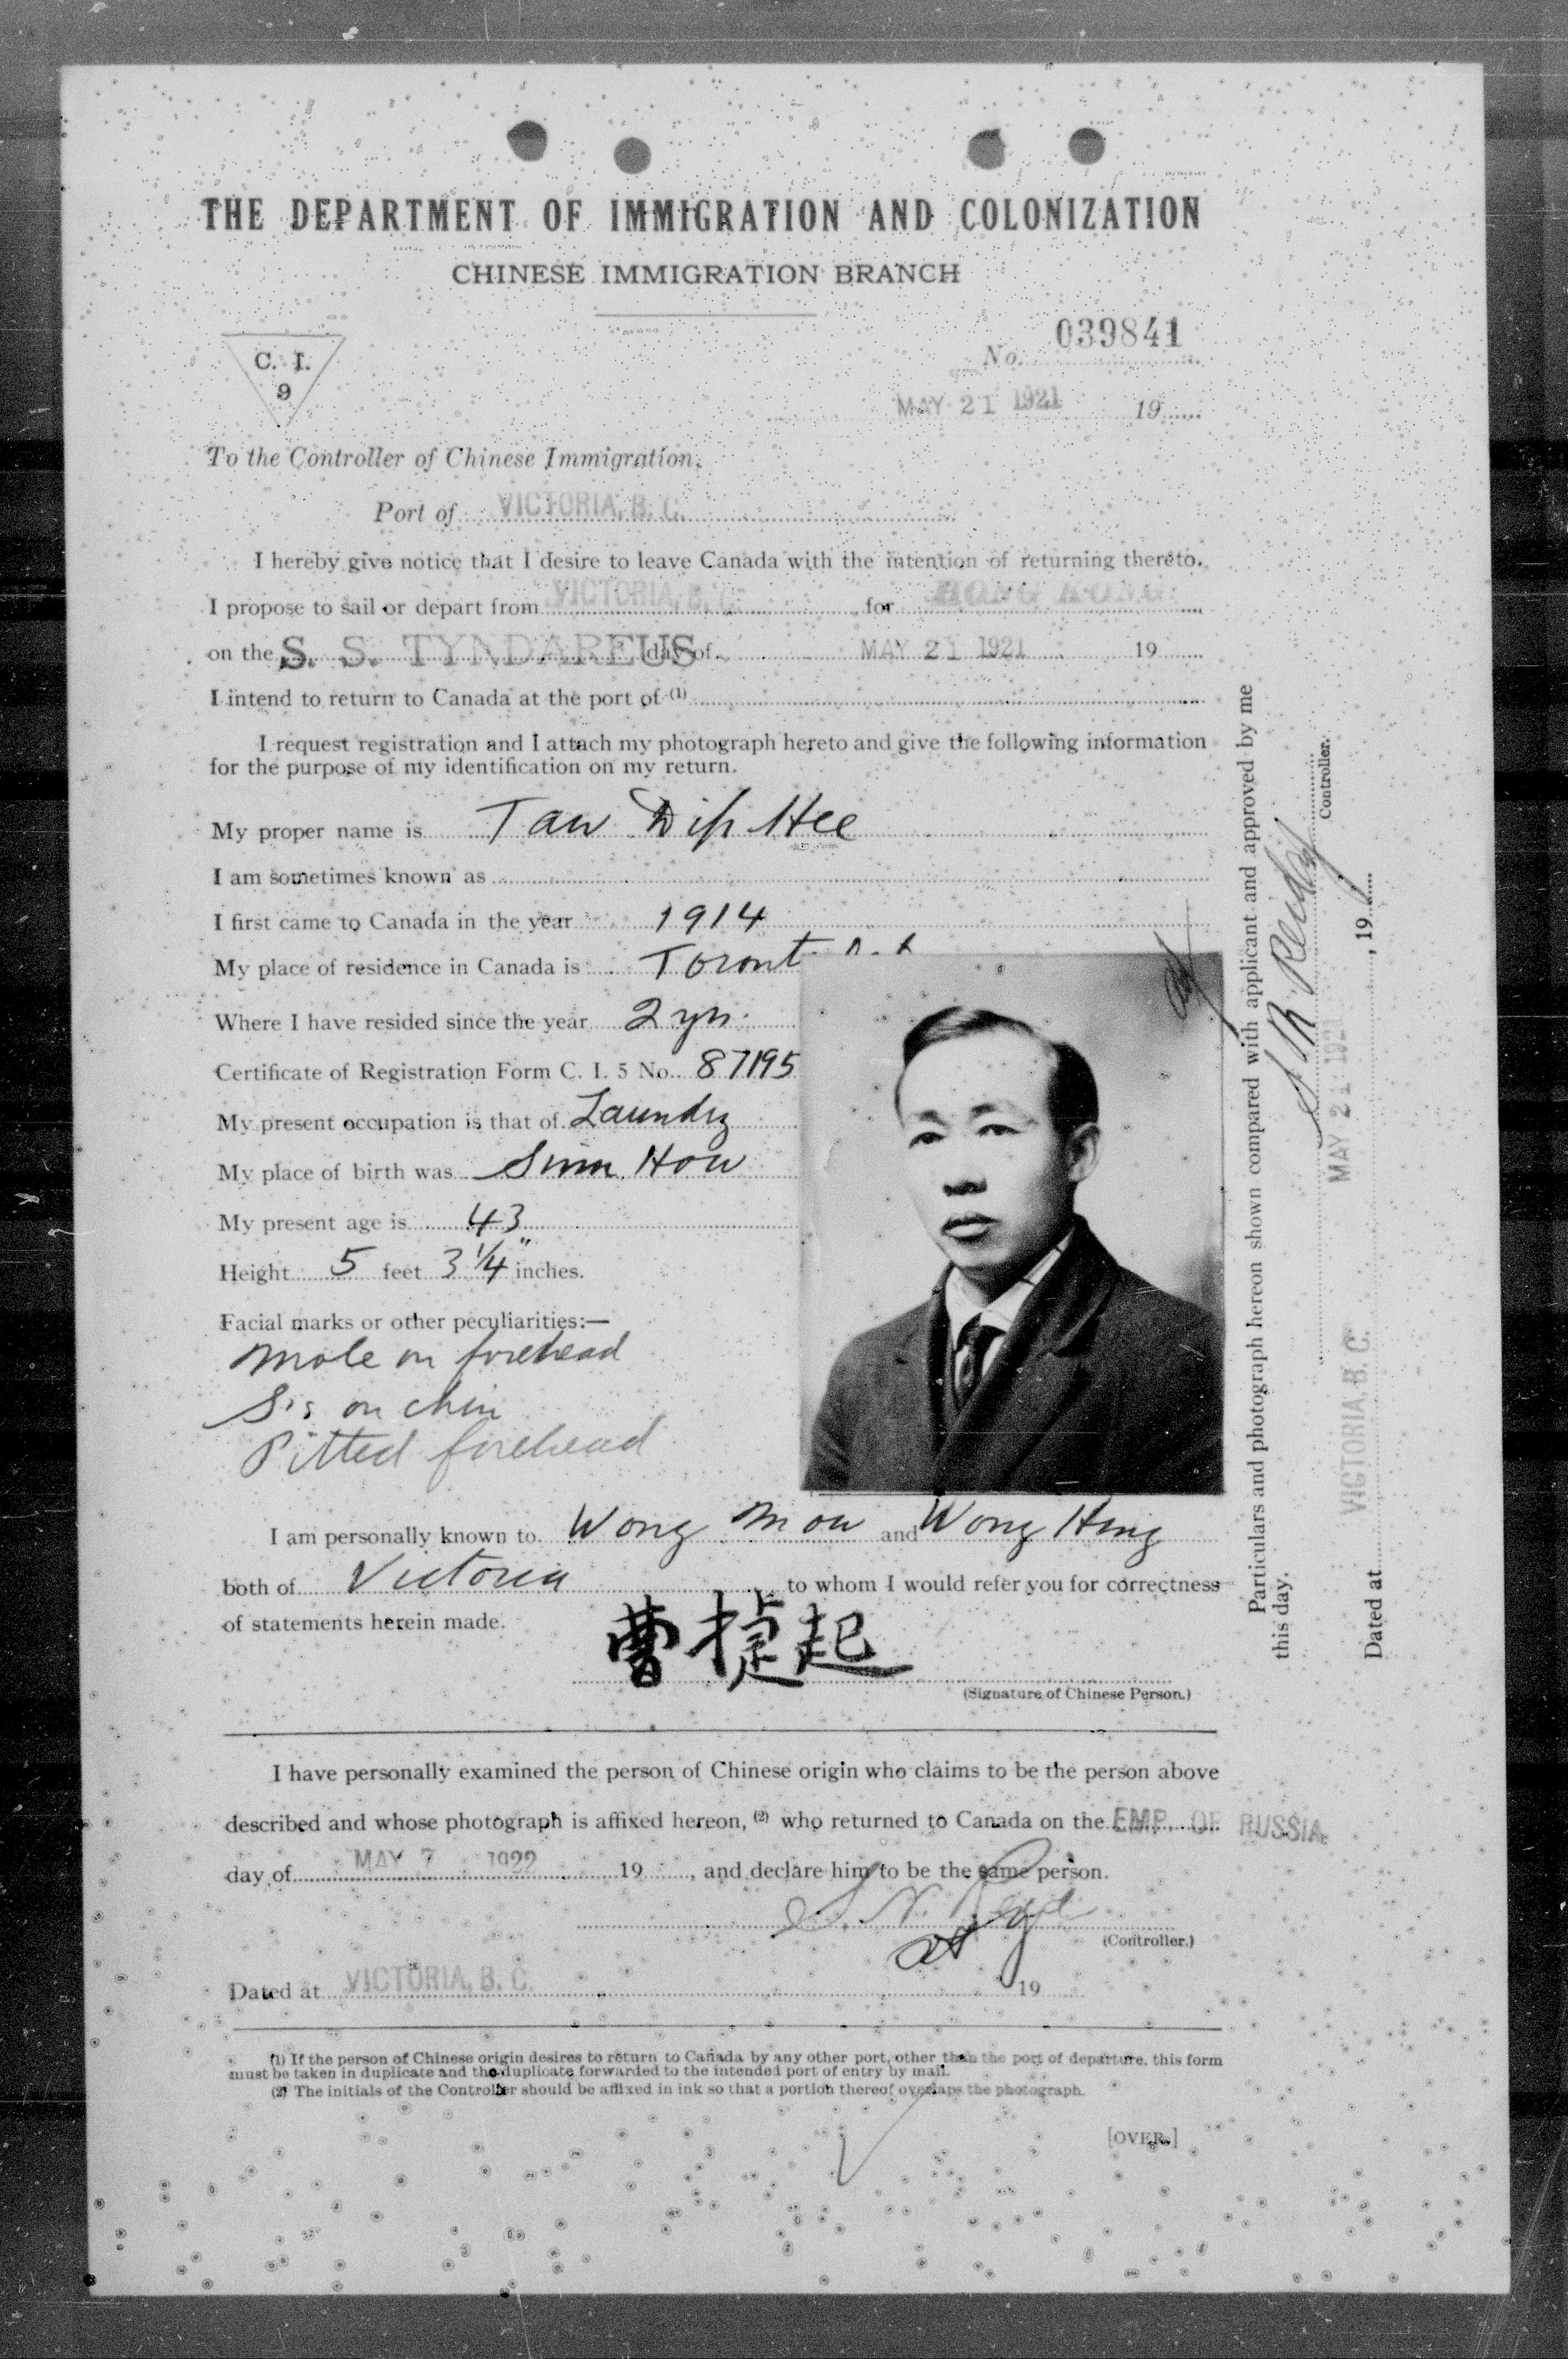 THE DEPARTMENT OF IMMIGRATION AND COLONIZATION
CHINESE IMMIGRATION BRANCH
C. I.
9
No. 039841
MAY 21 1921 19
To the Controller of Chinese Immigration,
Port of VICTORIA, B. C.
I hereby give notice that I desire to leave Canada with the intention of returning thereto.
I propose to sail or depart from VICTORIA, B. C. for HONG KONG
on the S. S. TYNDAREUS day of MAY 21 1921 19
I intend to return to Canada at the port of (1)
I request registration and I attach my photograph hereto and give the following information
for the purpose of my identification on my return.
My proper name is Taw Dip Hee
I am sometimes known as
I first came to Canada in the year 1914
My place of residence in Canada is Toront
Where I have resided since the year 2 yrs.
Certificate of Registration Form C. I. 5 No. 87195
My present occupation is that of Laundry
My place of birth was Sinn How
My present age is 43
Height 5 feet 3 1/4" inches.
Facial marks or other peculiarities:—
Mole on forehead
on chin
Pitted forehead
I am personally known to Wong Mow and Wong Hing
both of Victoria to whom I would refer you for correctness
of statements herein made.
曹捷起
(Signature of Chinese Person.)
I have personally examined the person of Chinese origin who claims to be the person above
described and whose photograph is affixed hereon, (2) who returned to Canada on the EMP. OF RUSSIA
day of MAY 7 1922 19, and declare him to be the same person.
(Controller.)
Dated at VICTORIA, B. C. 19
(1) If the person of Chinese origin desires to return to Canada by any other port, other than the port of departure, this form
must be taken in duplicate and the duplicate forwarded to the intended port of entry by mail.
(2) The initials of the Controller should be affixed in ink so that a portion thereof overlaps the photograph.
[OVER.]
Particulars and photograph hereon shown compared with applicant and approved by me
this day.
Controller.
MAY 21 1921
Dated at VICTORIA, B. C. , 19